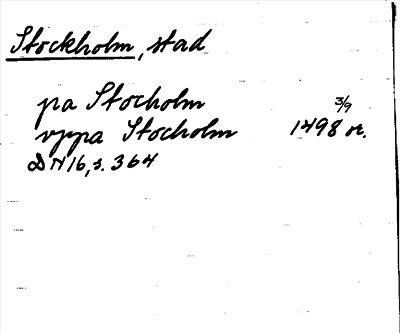 Stockholm, stad
pa Stocholm
vppa Stocholm 3/9 1498 or.
DN 16, s. 364